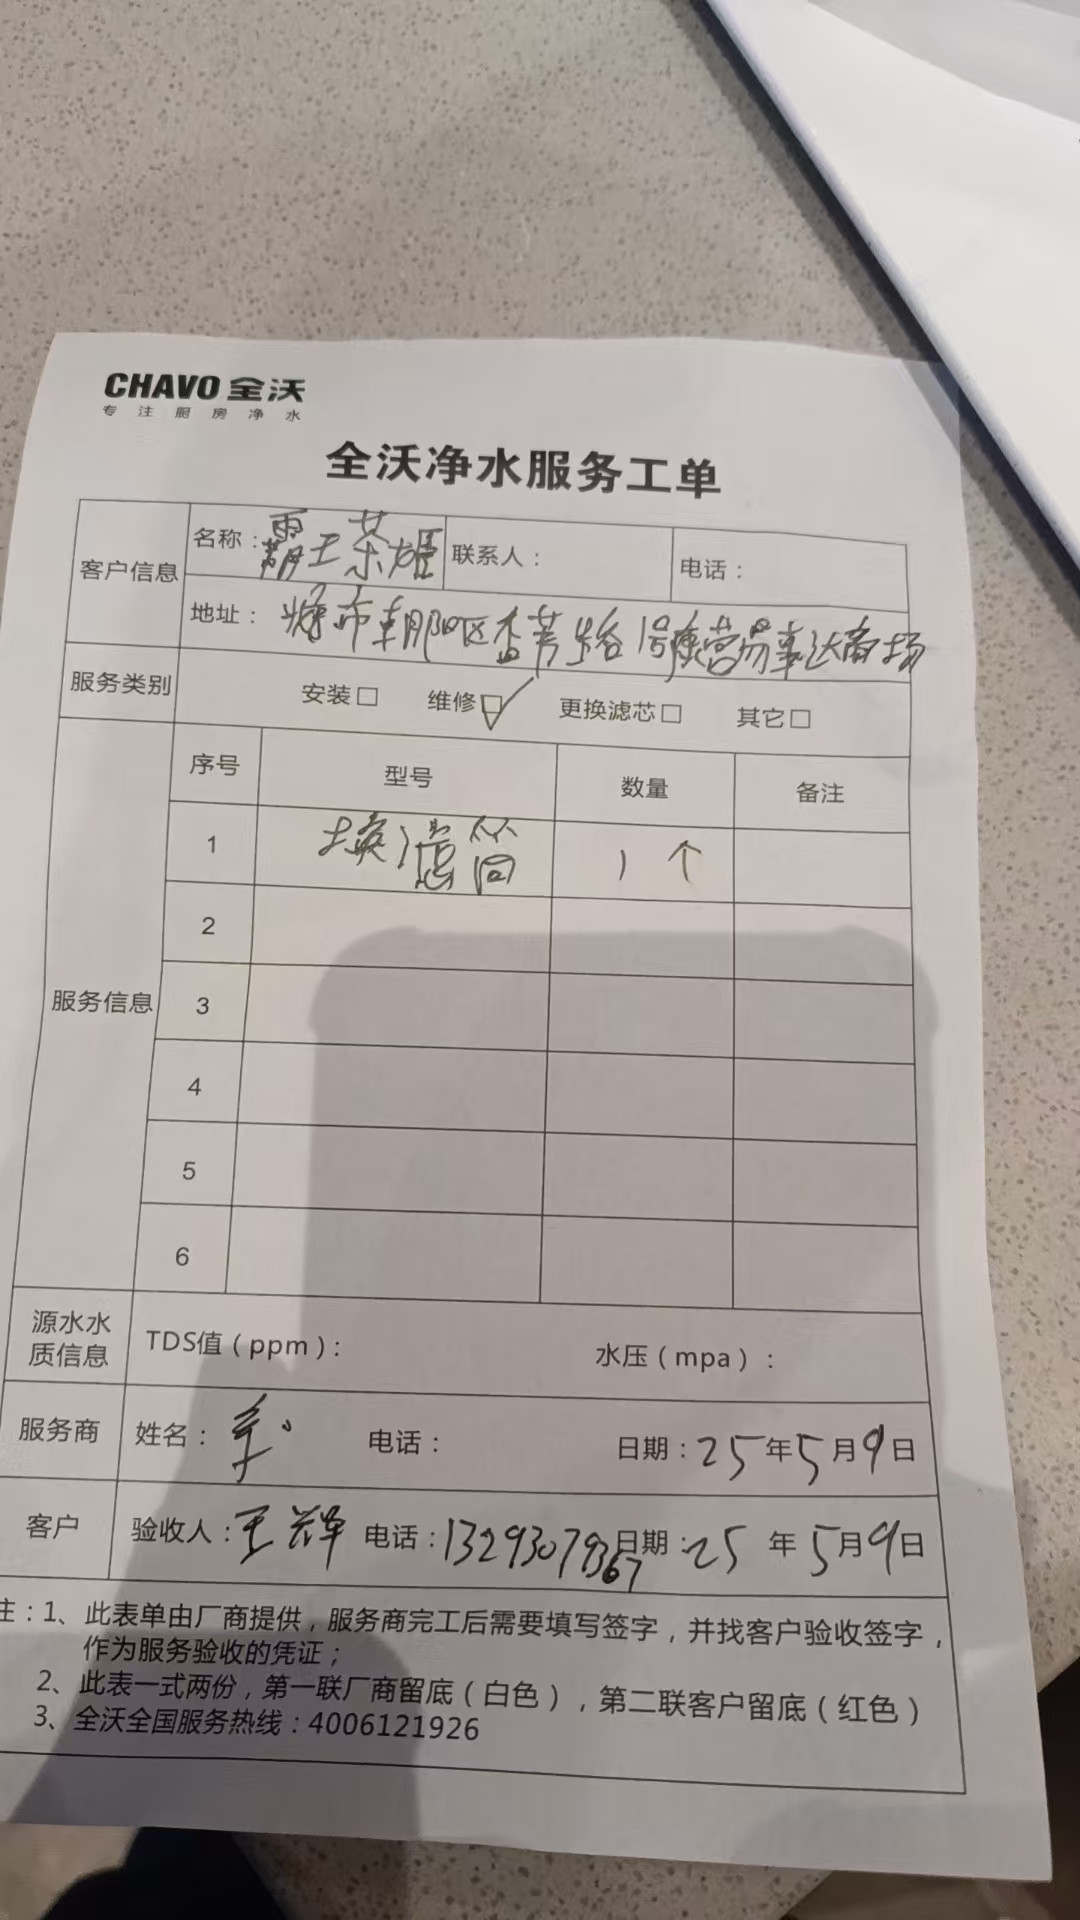 CHAVO 全沃
专注厨房净水
全沃净水服务工单
客户信息
名称：霸王茶姬 联系人： 电话：
地址： 市朝阳区 路1号 商场
服务类别 安装□ 维修☑ 更换滤芯□ 其它□
服务信息
序号 型号 数量 备注
1 换滤筒 1个
2
3
4
5
6
源水水质信息 TDS值（ppm）： 水压（mpa）：
服务商 姓名： 电话： 日期：25年5月9日
客户 验收人：王辉 电话：13293079367 日期：25年5月9日
注：1、此表单由厂商提供，服务商完工后需要填写签字，并找客户验收签字，
作为服务验收的凭证；
2、此表一式两份，第一联厂商留底（白色），第二联客户留底（红色）
3、全沃全国服务热线：4006121926